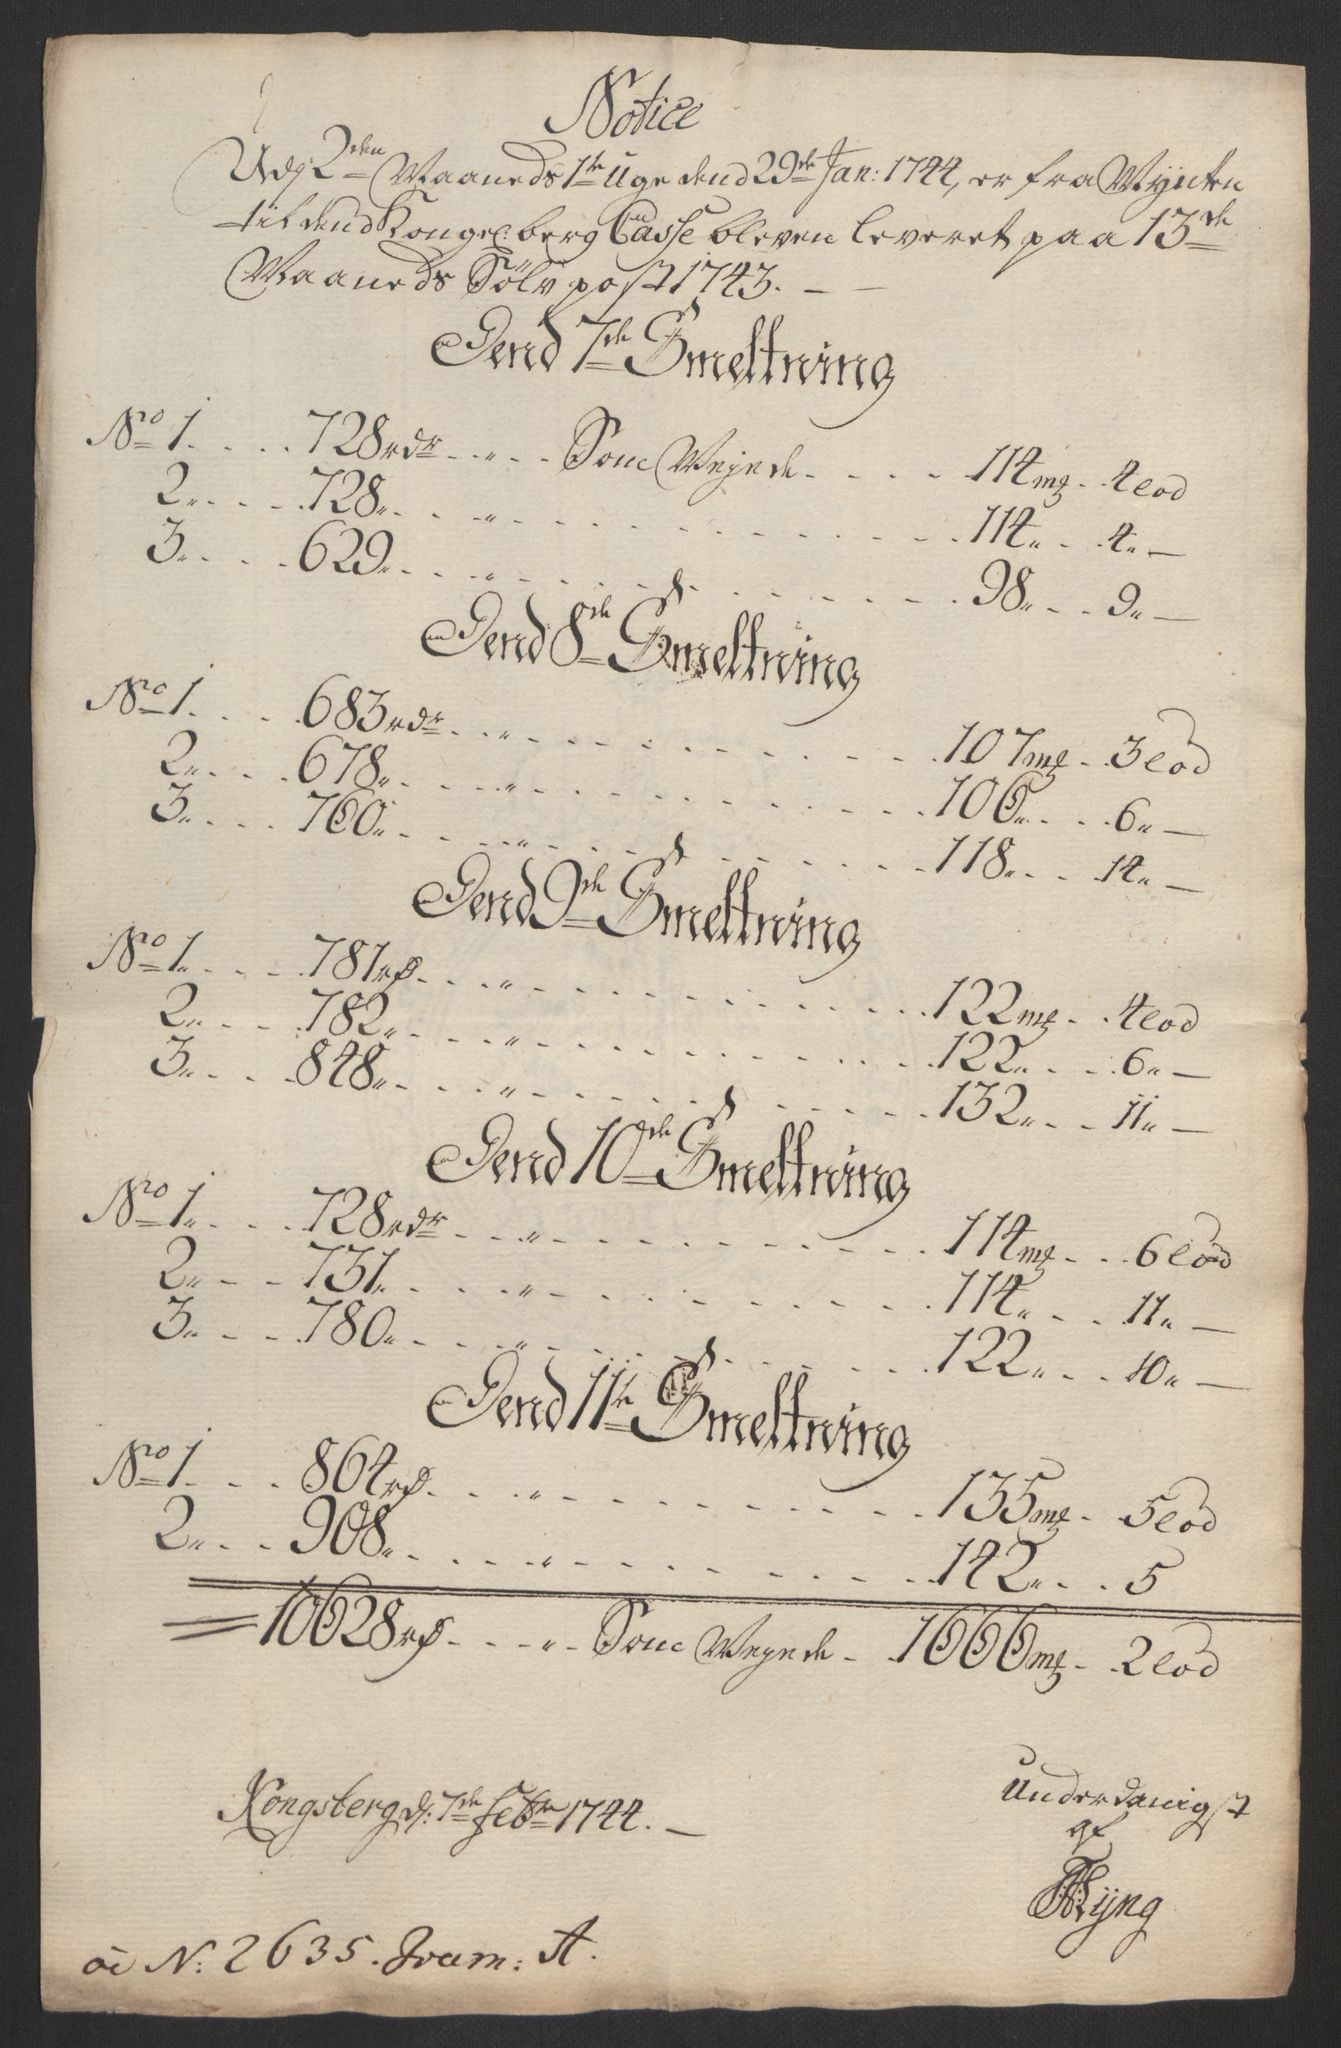 Notice
Udj 2den Maaneds 1te Uge dend 29de Jan: 1744, er fra Mÿnten
til dend Kongel: berg Casse bleven leveret paa 13de
Maaneds Sölv post 1743. — —
Dend 7de Smeltning
No 1. . . . . 728 rdr . . „ . . Som Veÿede . . . . 114 mg . 4 lod
2„ . . . . 728„ . . „ . . . . . . . . . . . 114„ . . 4„ —
3„ . . . . 629„ . . „ . . . . . . . . . . . 98„ . . 9„ —
Dend 8de Smeltning
No 1. . . . . 683 rdr . . „ . . . . . . . . . . . 107 mg . 3 lod
2„ . . . . 678„ . . „ . . . . . . . . . . . 106„ . . 6„ —
3„ . . . . 760„ . . „ . . . . . . . . . . . 118„ . . 14„ —
Dend 9de Smeltning
No 1„ . . . . 781 rd . . „ . . . . . . . . . . . 122 mg . 4 lod
2„ . . . . 782„ . . „ . . . . . . . . . . . 122„ . . 6„ —
3„ . . . . 848„ . . „ . . . . . . . . . . . 132„ . . 11„ —
Dend 10de Smeltning
No 1„ . . . . 728 rdr . . „ . . . . . . . . . . . 114 mg . . 6 lod
2„ . . . . 731„ . . „ . . . . . . . . . . . 114„ . . 11„ —
3„ . . . . 780„ . . „ . . . . . . . . . . . 122„ . . 10„ —
Dend 11te Smeltning
No 1. . . . 864 rd . . „ . . . . . . . . . . . 135 mg . 5 lod
2„ . . . 908„ . . „ . . . . . . . . . . . 142„ . . 5
= 10628 rd . . . „ . Som Veÿede . 1666 mg . 2 lod
Kongsberg d: 7de Febr 1744. —
Underdanigst
af
Ryng
N: 2635. Fram: A.